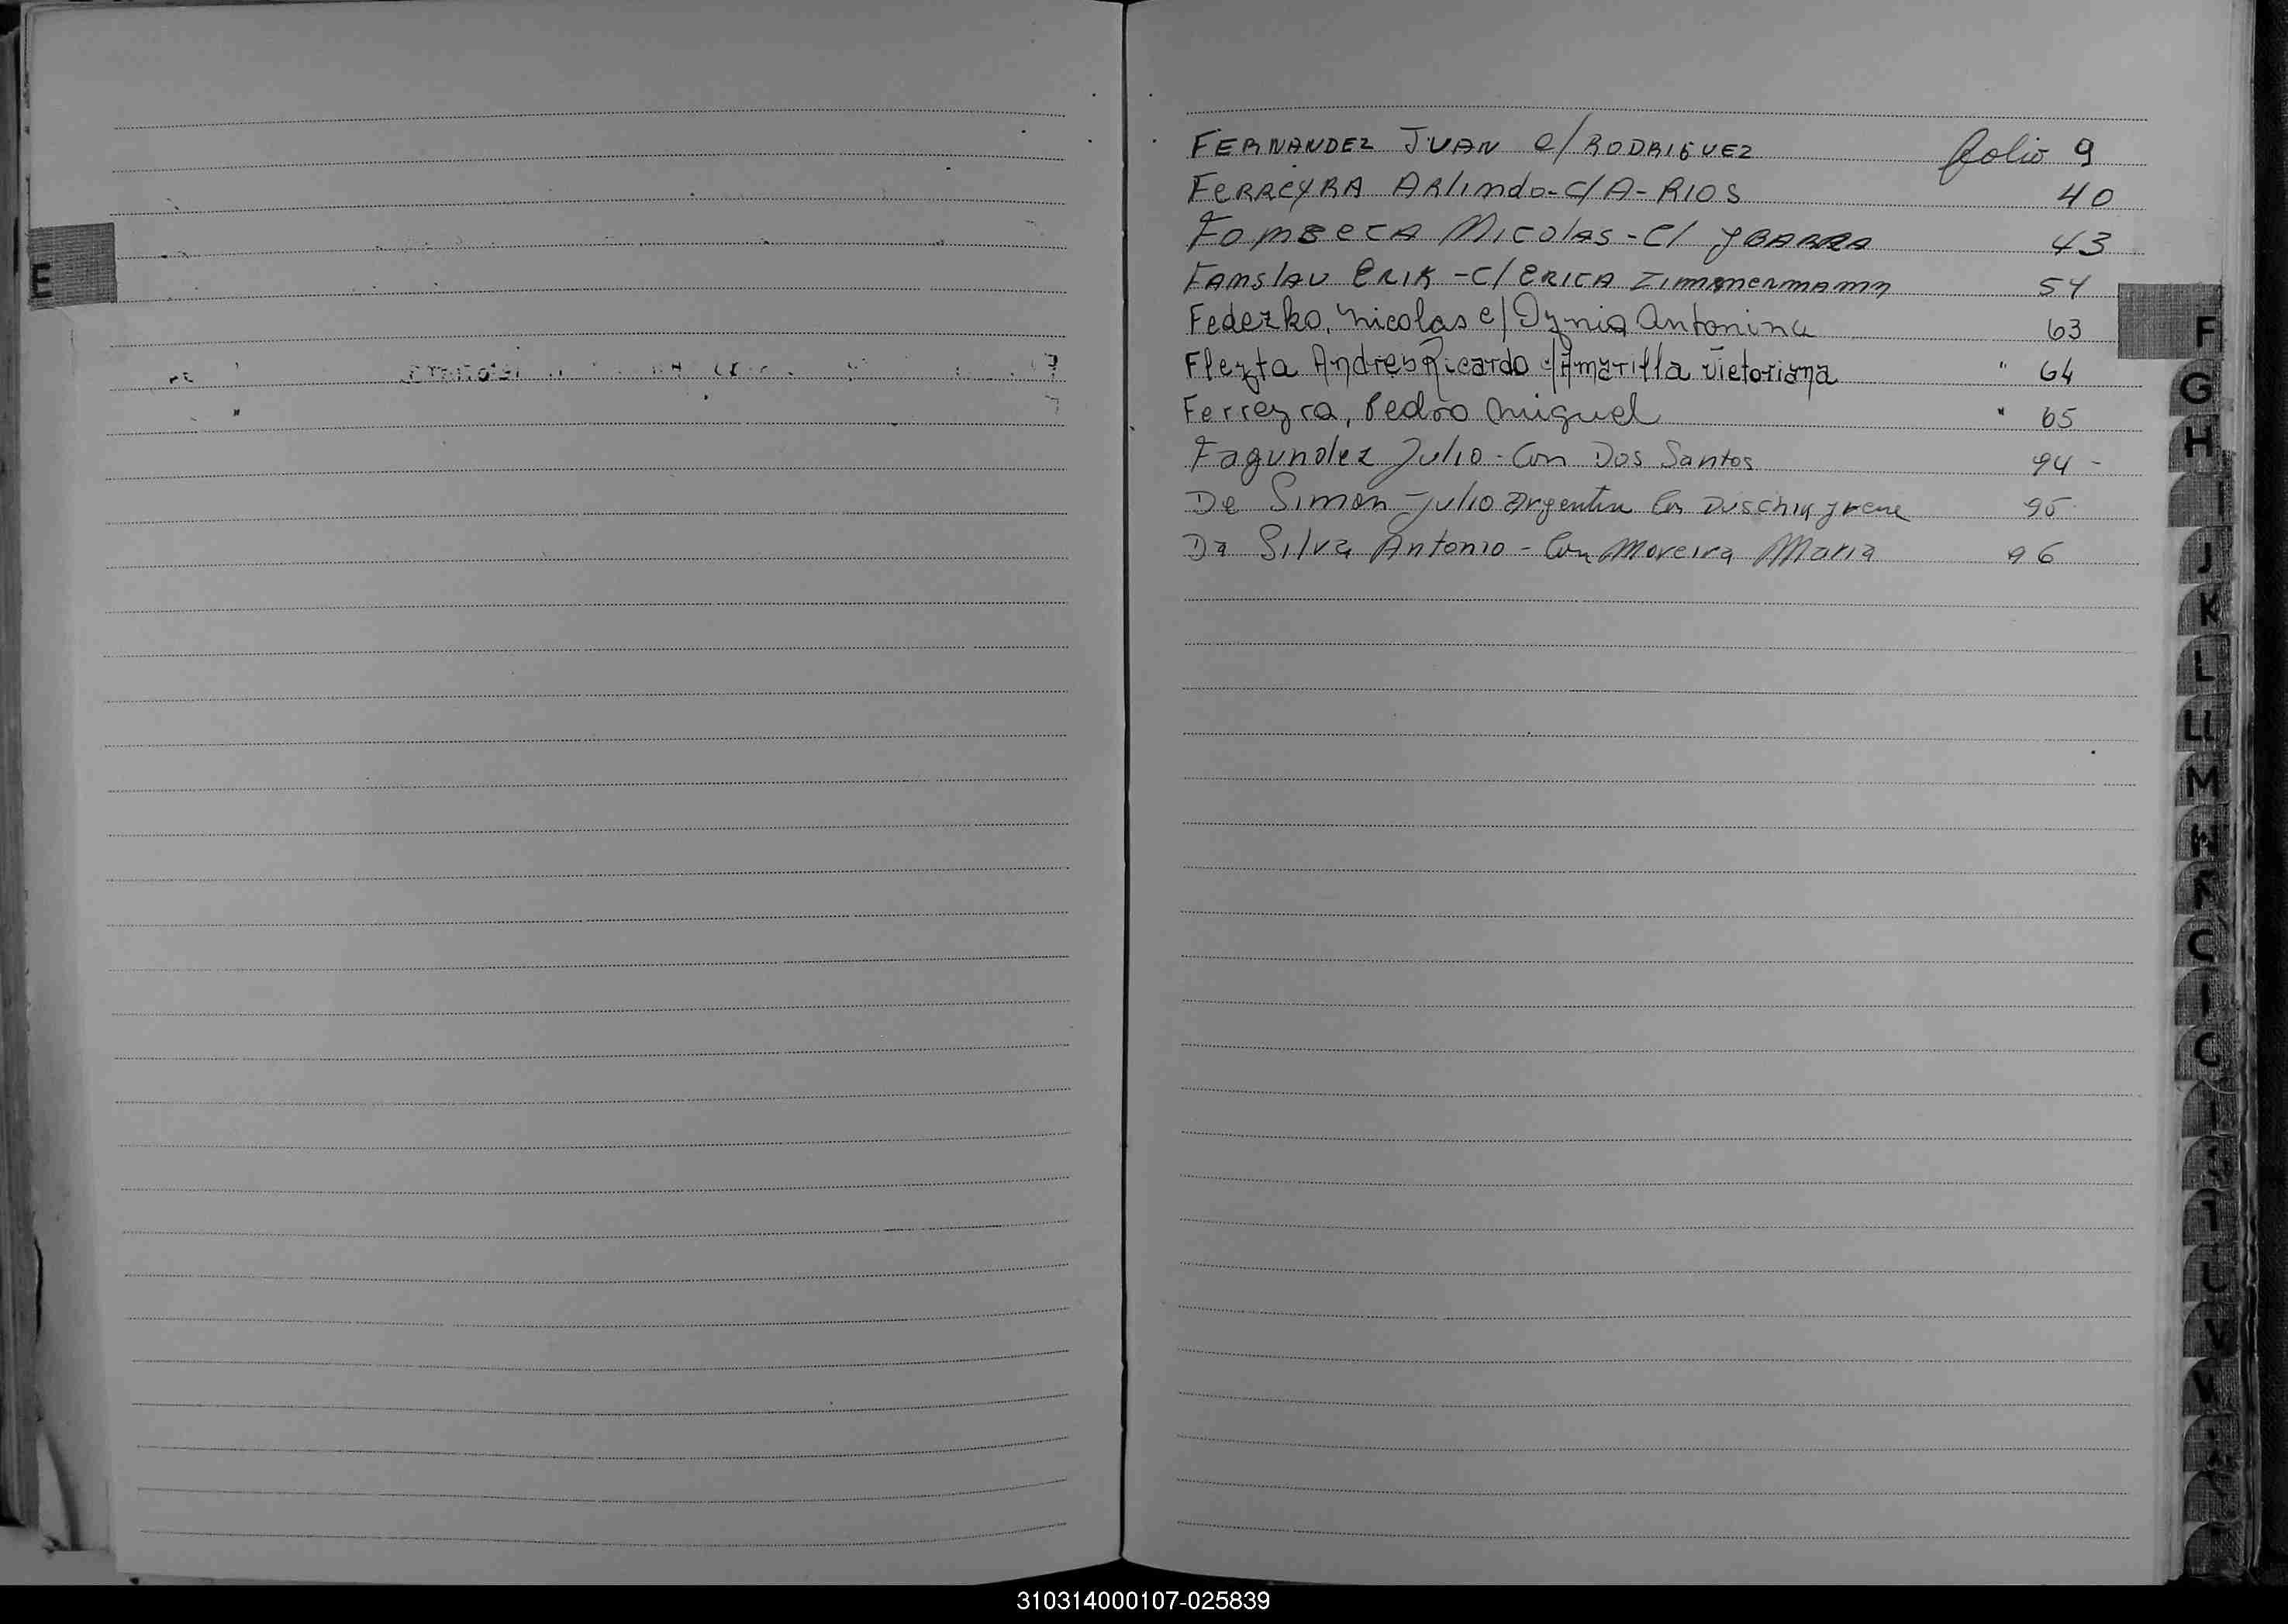 E
FERNANDEZ JUAN C/RODRIGUEZ folio 9
FERREYRA ARlindo-C/A-RIOS 40
FOMSECA NICOLAS-C/ YBARRA 43
FAMSLAU ERIK-C/ERICA ZIMMMERMAMN 54
Federko, Nicolas c/Dynia Antonina 63
Fleyta Andres Ricardo c/Amarilla Victoriana " 64
Ferreyra, Pedro Miguel " 65
Fagundez Julio-Con Dos Santos 94-
De Simon-Julio Argentin Con Duschik Yrene 95
Da Silva Antonio-Con Moreira Maria 96
F
G
H
I
J
K
L
LL
M
310314000107-025839